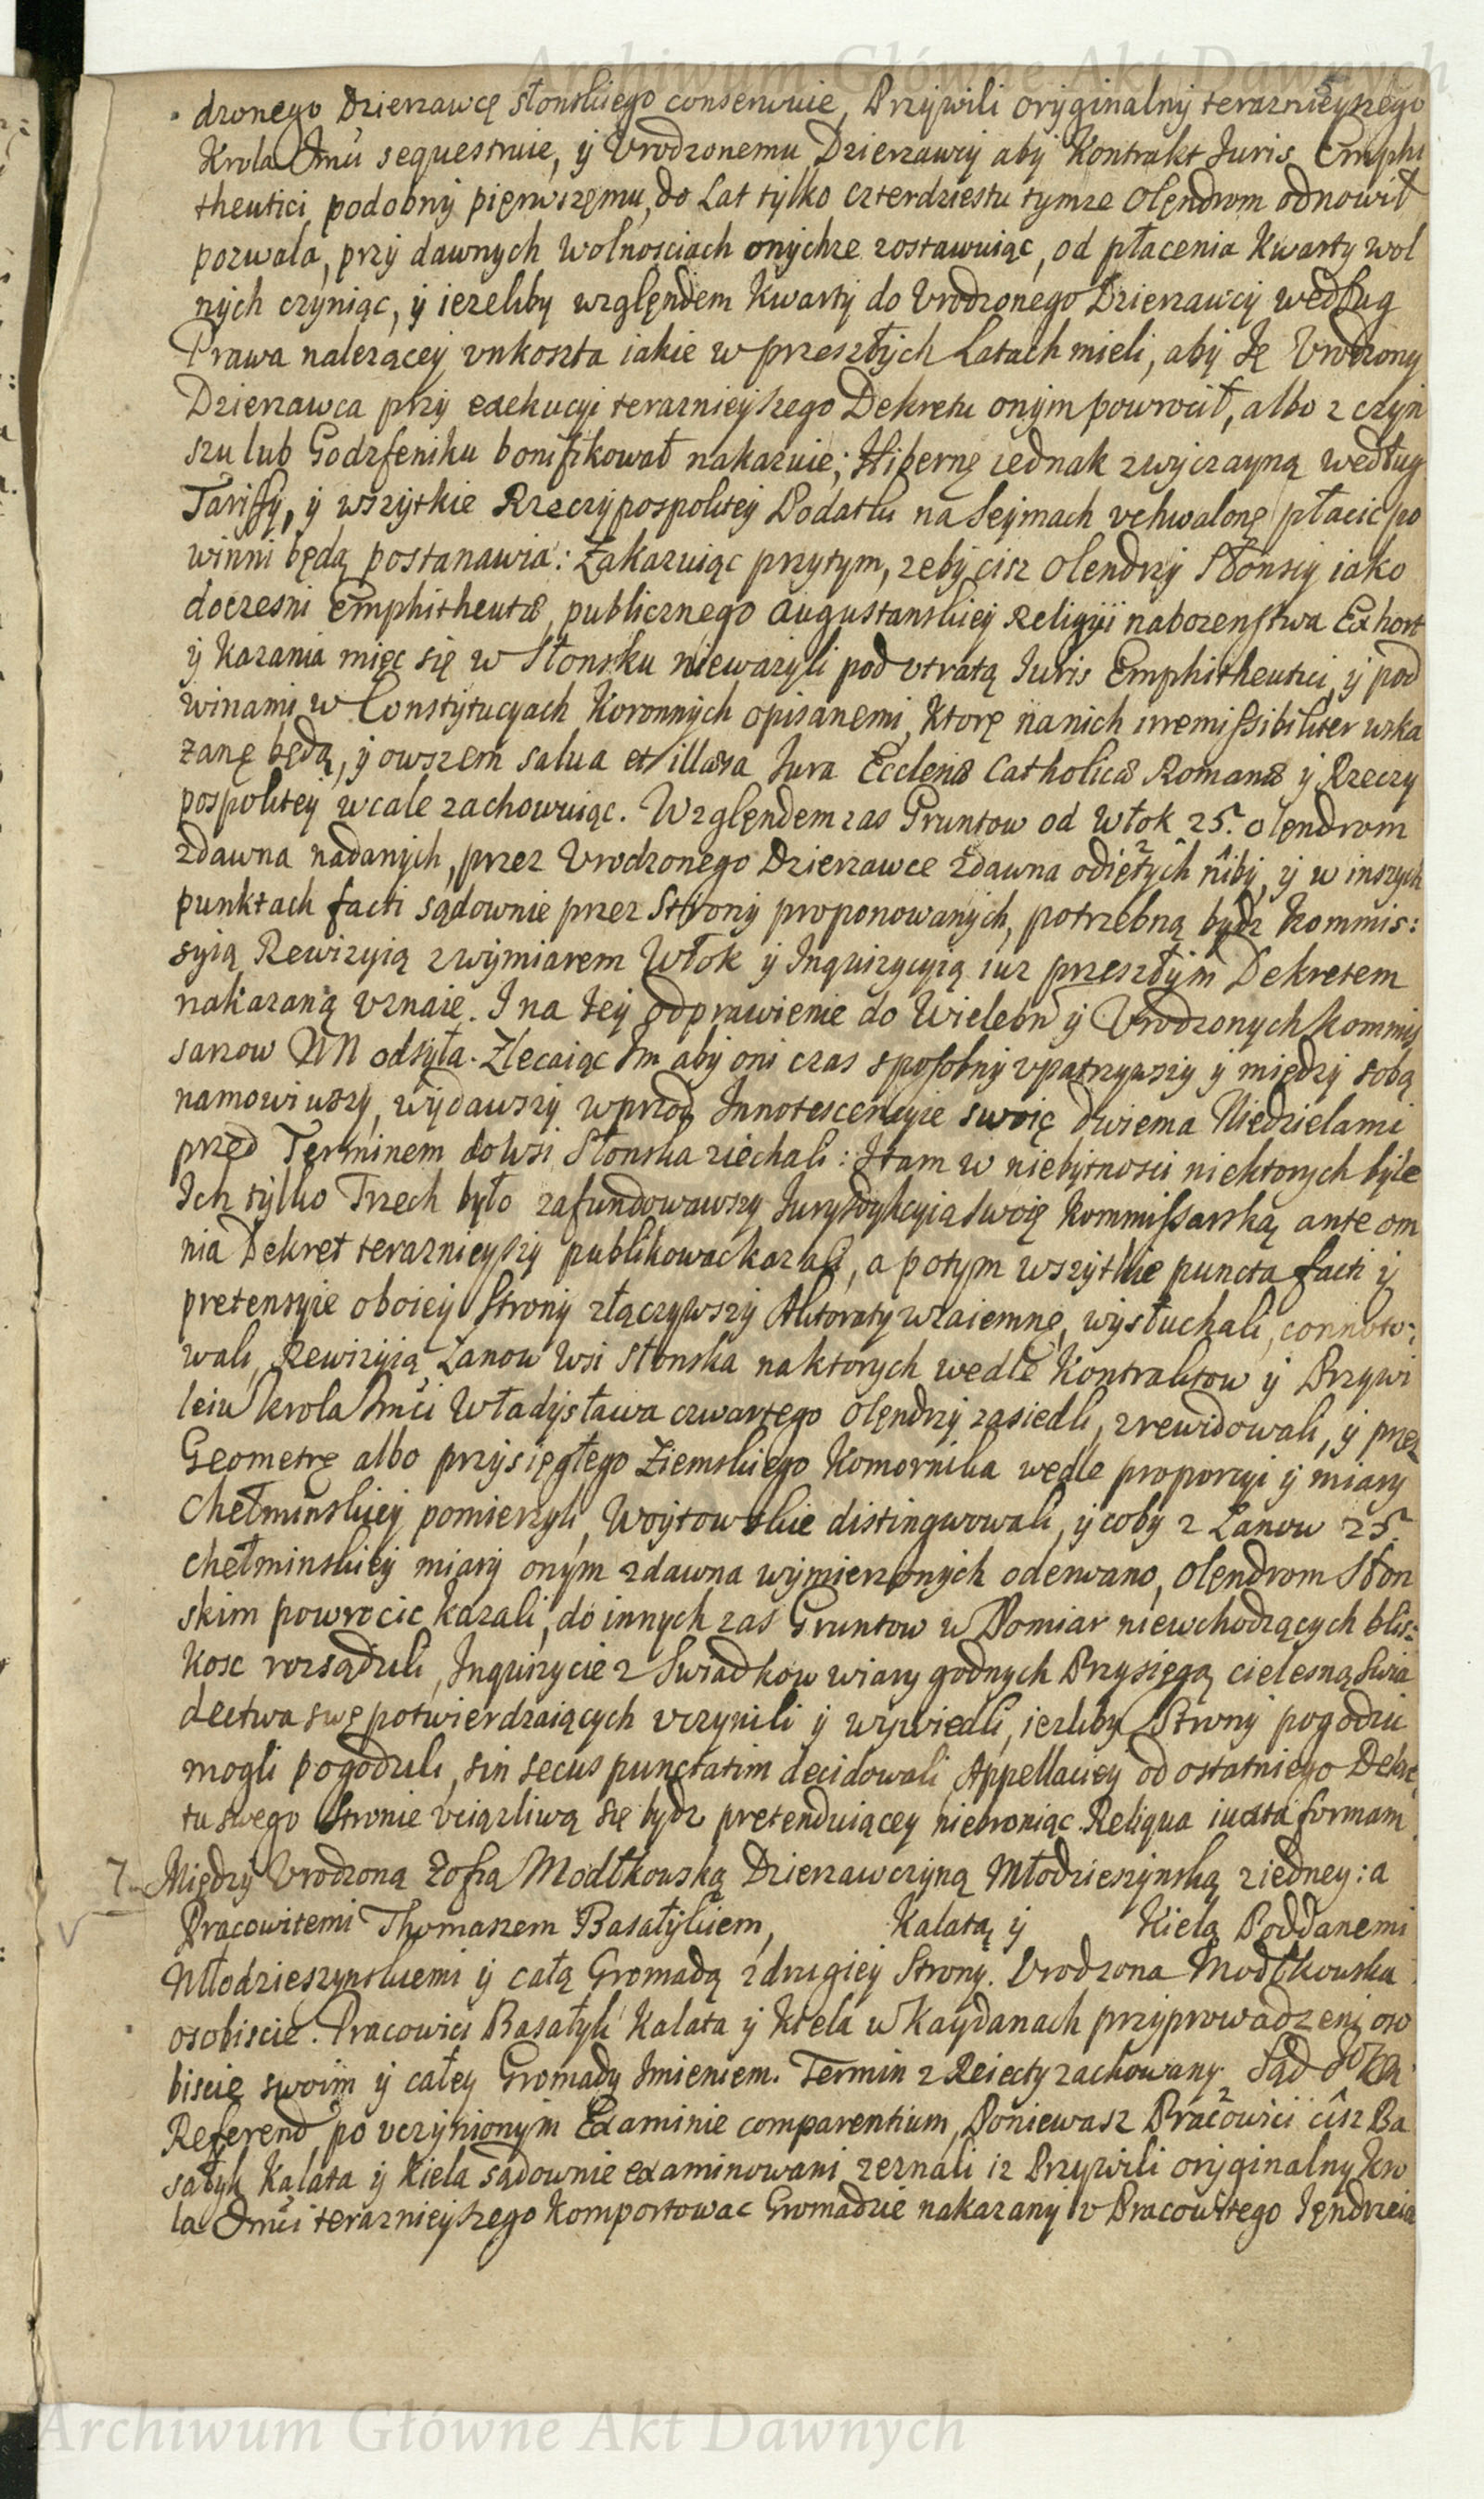 Archiwum Główne Akt Dawnych
dzonego Dzierzawcę słonskiego conserwuie, Przywili oryginalny terazniėyszego
Krola Jmći sequestruie, ÿ Vrodzonemu Dzierzawcy aby Kontrakt Juris Emphi
theutici podobny pięrwszęmu, do Lat tylko czterdziestu tymze Olęndrom odnowił
pozwala, przy dawnych Wolnosciach onychze zostawuiąc, od płacenia Kwarty wol
nych czyniąc, ÿ iezeliby względem Kwarty do Vrodzonego Dzierzawcy według
Prawa nalezącey vnkoszta iakie w przeszłych Latach mieli, aby Ję Vrodzony
Dzierzawca przy exekucyi teraznieyszego Dekretu onym powrocił, albo z czyn
szu lub Godzfeniku bonifikował nakazuie; Hibernę iednak zwyczayną według
Tariffy, ÿ wszytkie Rzeczypospolitey Podatki na Seymach vchwalonę płacic po
winni będą postanawia: Zakazuiąc przytym, zeby cisz Olendrzy Słonscy iako
doczesni Emphitheutæ, publicznego Augustanskiey Religyi nabozenstwa Exhort
ÿ Kazania mięc się w Słonsku niewazyli pod vtratą Juris Emphitheutici, ÿ pod
winami w Constytucyach Koronnych opisanemi, Ktorę nanich irremissibiliter wska
zanę będą, ÿ owszem salua et illæsa Jura Ecclesiæ Catholicæ Romanæ ÿ Rzeczy
pospolitey wcale zachowuiąc. Względem zas Gruntow od Włok 25. olęndrom
zdawna nadanych, przez Vrodzonego Dzierzawce zdawna odiętych niby, ÿ w inszych
punktach facti sądownie przez Strony proponowanych, potrzebną bydz Kommis:
syią Rewizyią zwymiarem Włok ÿ Inquizycyią iuz przeszłym Dekretem
nakazaną vznaie. I na tey odprawienie do Wielebn ÿ Vrodzonych Kommis
sarzow NN odsyła. Zlecaiąc Im aby oni czas sposobny vpatrzywszy ÿ między sobą
namowiwszy, wydawszy wprzod Innotescencyie swoię dwiema Niedzielami
przed Terminem do Wsi Słonska ziechali: I tam w niebytnosci niektorych byle
Ich tylko Trzech było zafundowawszy Jurysdykcyią Swoię Kommissarską ante om
nia Dekret teraznieyszy publikowac kazali, a potym wszytkie puncta facti ÿ
pretensyie oboiey Strony złączywszy Aktoraty wzaiemnę, wysłuchali, connoto:
wali, Rewizyią Łanow Wsi Słonska naktorych wedle Kontraktow ÿ Przywi
leiu Krola Jmći Władysława czwartego Olęndrzy zasiedli, zrewidowali, ÿ przez
Geometrę albo przysięgłego Ziemskiego Komornika wedle proporcyi ÿ miary
Chełminskiey pomierzyli, Woytowskie distingwowali, ÿ coby z Łanow 25.
chełminskiey miary onym zdawna wymierzonych oderwano, Olęndrom Słon
skim powrocic kazali, do innych zas Gruntow w Pomiar niewchodzących blis:
kosc rozsądzili, Inquizycie z Swiadkow wiary godnych Przysięgą cielesną Swia
dectwa swę potwierdzaiących vczynili ÿ wywiedli, iezliby Strony pogodzic
mogli pogodzili, sin secus punctatim decidowali Appellaciey od ostatniego Dekre
tu swego Stronie vciązliwą się bydz pretenduiącey niebroniąc. Reliqua iuxta formam
7. Między Vrodzoną Zofią Modłkowską Dzierzawczyną Młodzieszynską z iedney: a
Pracowitemi Thomaszem Basałykiem, Kalatą ÿ Kielą Poddanemi
Młodzieszynskiemi ÿ całą Gromadą z drugiey Strony. Vrodzona Modłkowska
osobiscie. Pracowici Basałyk Kalata ÿ Kiela w Kaydanach przyprowadzeni oso
biscię swoim ÿ całey Gromady Imieniem. Termin z Reiecty zachowany. Sąd
Referend po vczynionym Examinie comparentium, Poniewasz Pracowici cisz Ba
sałyk Kalata ÿ Kiela sądownie examinowani zeznali iz Przywili oryginalny Kro
la Jmći teraznieyszego Komportowac Gromadzie nakazany v Pracowitego Jędrzeia
Archiwum Główne Akt Dawnych